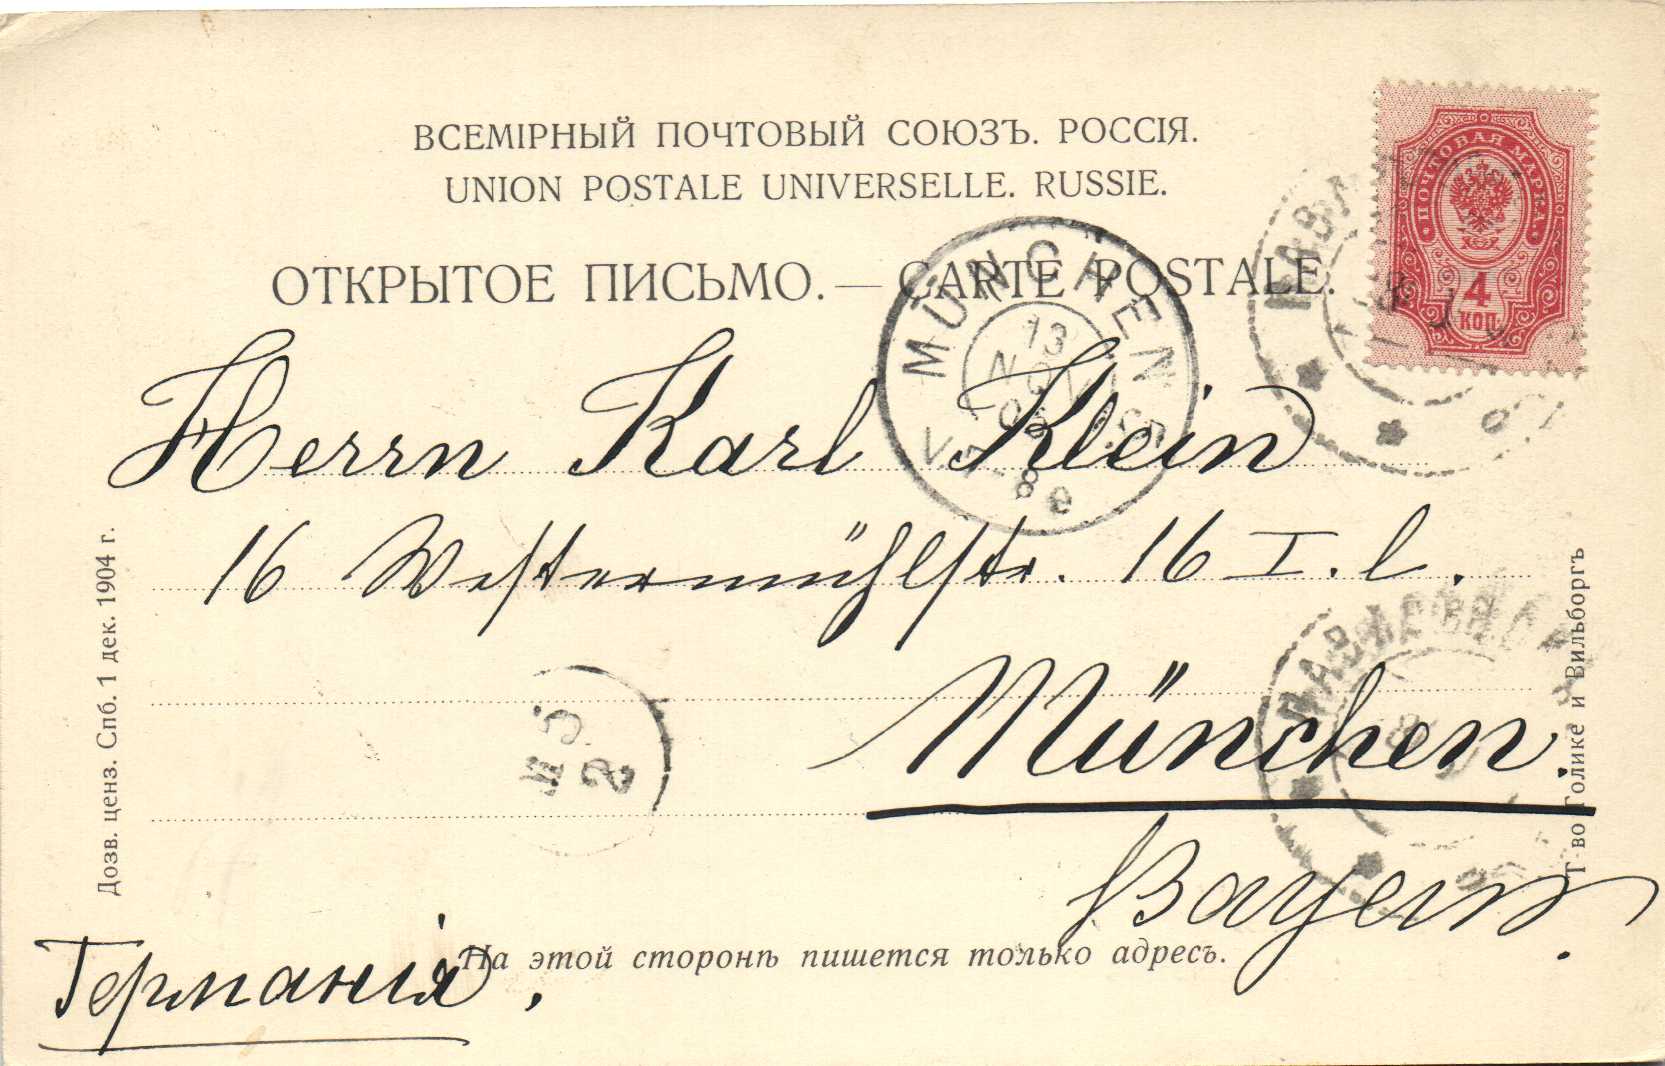 ВСЕМІРНЫЙ ПОЧТОВЫЙ СОЮЗЪ. РОССІЯ.
UNION POSTALE UNIVERSELLE. RUSSIE.
ОТКРЫТОЕ ПИСЬМО. — CARTE POSTALE.
ПОЧТОВАЯ МАРКА
4
КОП.
MÜNCHEN
13
NOV
05
V. 7-8
Herrn Karl Klein
16 Westermühlstr. 16 I. l.
München.
Bayern.
Германія,
На этой сторонѣ пишется только адресъ.
Дозв. ценз. Спб. 1 дек. 1904 г.
Т-во Голике и Вильборгъ